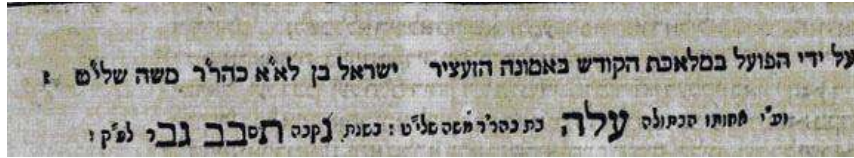 על ידי הפועל במלאכת הקודש באמונה הזעציר ישראל בן לא"א כהר"ר משה שלי"ט :
וע"י אחותו הבתולה עלה בת כהר"ר משה שלי"ט : בשנת נקבה תסבב גבר לפ"ק :